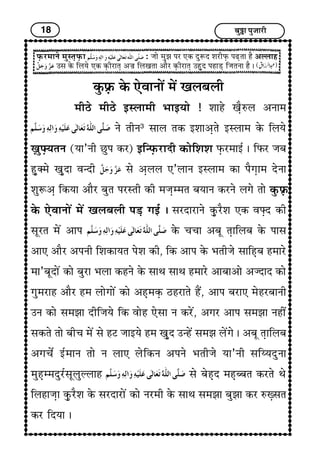 18
बुढ्ढा पुजारी
फ़रमाने मुस्तफ़ा صَلَّى اللهُ تَعَالٰى عَلَيْهِ وَاٰلِهٖ وَسَلَّم : जो मुझ पर एक दुरूद शरीफ़ पढ़ता है अल्लाह
عَزَّوَجَلَّ उस के लिये एक क़ीरात़ अज्र लिखता और क़ीरात़ उहुद पहाड़ जितना है ।
कुफ़्र के ऐवानों में खलबली
मीठे मीठे इस्लामी भाइयो ! शाहे ख़ैरुल अनाम
صَلَّى اللهُ تَعَالٰى عَلَيْهِ وَاٰلِهٖ وَسَلَّم ने तीन³ साल तक इशाअ़ते इस्लाम के लिये
ख़ुफ़्यतन (या'नी छुप कर) इन्फ़िरादी कोशिश फ़रमाई । फिर जब
हुक्मे ख़ुदा वन्दी عَزَّوَجَلَّ से अ़लल ए'लान इस्लाम का पैग़ाम देना
शुरूअ़ किया और बुत परस्ती की मज़म्मत बयान करने लगे तो कुफ़्र
के ऐवानों में खलबली पड़ गई । सरदाराने क़ुरैश एक वफ़्द की
सूरत में आप صَلَّى اللهُ تَعَالٰى عَلَيْهِ وَاٰلِهٖ وَسَلَّم के चचा अबू त़ालिब के पास
आए और अपनी शिकायत पेश की, कि आप के भतीजे साह़िब हमारे
मा'बूदों को बुरा भला कहने के साथ साथ हमारे आबाओ अज्दाद को
गुमराह और हम लोगों को अह़मक़ ठहराते हैं, आप बराए मेहरबानी
उन को समझा दीजिये कि वोह ऐसा न करें, अगर आप समझा नहीं
सकते तो बीच में से हट जाइये हम ख़ुद उन्हें समझ लेंगे । अबू त़ालिब
अगर्चे ईमान तो न लाए लेकिन अपने भतीजे या'नी सय्यिदुना
मुह़म्मदुर्रसूलुल्लाह صَلَّى اللهُ تَعَالٰى عَلَيْهِ وَاٰلِهٖ وَسَلَّم से बेहद मह़ब्बत करते थे
लिहाज़ा क़ुरैश के सरदारों को नरमी के साथ समझा बुझा कर रुख़्सत
कर दिया ।